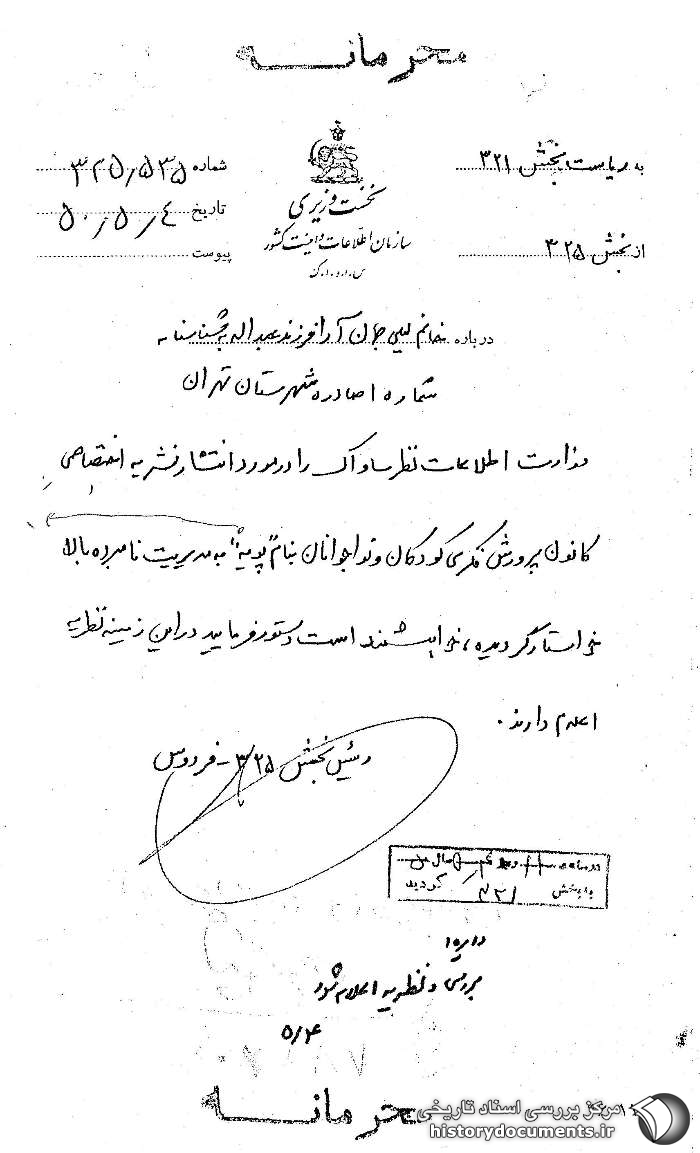 محرمانه
به ریاست بخش ۳۲۱
از بخش ۳۲۵
نخست وزیری
سازمان اطلاعات و امنیت کشور
س.ا.و.ا.ک
شماره ۳۲۵/۵۳۵
تاریخ ۵۰/۵/۴
پیوست
درباره خانم لیلی جهان آرا فرزند عبداله بشناسنامه
شماره ۱ صادره شهرستان تهران
وزارت اطلاعات نظر ساواک را در مورد انتشار نشریه اختصاصی
کانون پرورش فکری کودکان و نوجوانان بنام "پویه" به مدیریت نامبرده بالا
خواستار گردیده، خواهشمند است دستور فرمایید در این زمینه نظریه
اعلام دارند.
رئیس بخش ۳۲۵ - فردوس
در ساعت سال
به بخش ۳۲۱ گردید
دایره ۱
بررسی و نظریه اعلام شود
۵/۴
محرمانه
مرکز بررسی اسناد تاریخی
historydocuments.ir